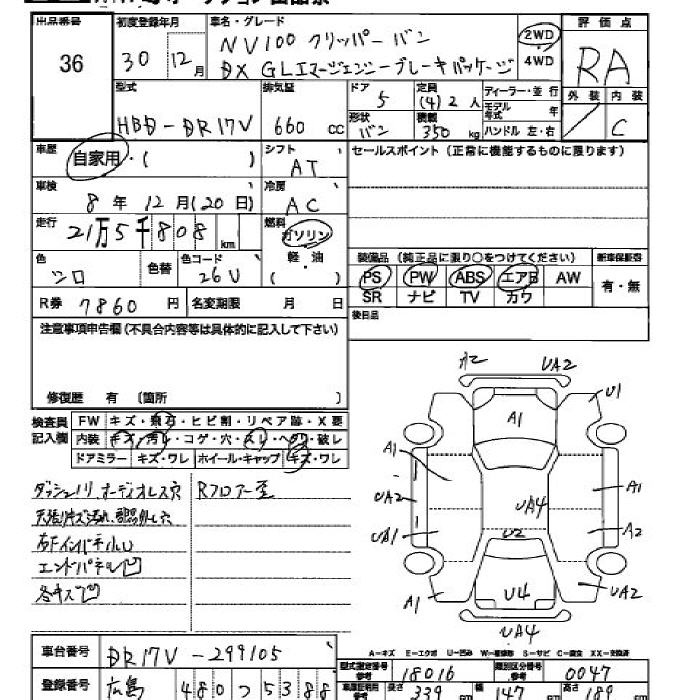 出品番号 初度登録年月 車名・グレード 評価点
36 30年12月 NV100 クリッパーバン 2WD RA
DX GLエマージェンシーブレーキパッケージ 4WD
型式 排気量 ドア 5 定員 (4) 2 人 ディーラー・並行 外装 内装
HBD-DR17V 660 cc 形状 バン 積載 350 kg モデル年式 年 ハンドル 左・右 C
車歴 自家用・( ) シフト AT セールスポイント (正常に機能するものに限ります)
車検 8年12月(20日) 冷房 AC
走行 21万5千808 km 燃料 ガソリン 軽・油 ( )
色 シロ 色替 色コード 26U 装備品 (純正品に限り○をつけてください) 新車保証書
PS PW ABS エアB AW 有・無
R券 7860円 名変期限 月 日 SR ナビ TV カワ
注意事項申告欄(不具合内容等は具体的に記入して下さい) 後日品
修復歴 有 〔箇所 〕
検査員記入欄 FW キズ・飛石・ヒビ割・リペア跡・X要
内装 キズ・汚レ・コゲ・穴・スレ・ヘタリ・破レ
ドアミラー キズ・ワレ ホイール・キャップ キズ・ワレ
ダッシュノリ オーディオレス穴 Rフロアー歪
エンドパネル凹
各キズ凹
A2 UA2
U1
A1
A1 A1
UA2 UA4
UA1 A2
U2
A1 U4 UA2
UA4
A-キズ E-エクボ U-凹み W-補修跡 S-サビ C-腐食 XX-交換済
車台番号 DR17V-299105 型式指定番号 参考 18016 類別区分番号 参考 0047
登録番号 広島 480 つ 5388 長さ 339 cm 幅 147 cm 高さ 189 cm